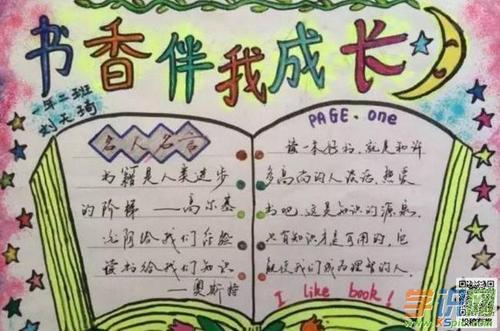 书香伴我成长
一年二班
刘天琦
名人名言
书籍是人类进步
的阶梯——高尔基
光阴给我们经验
读书给我们知识
——奥斯特
PAGE.one
读一本好书,就是和许
多高尚的人谈话,热爱
书吧,这是知识的源泉,
只有知识才是可用的,它
能使我们成为理智的人.
I like book!
学识网